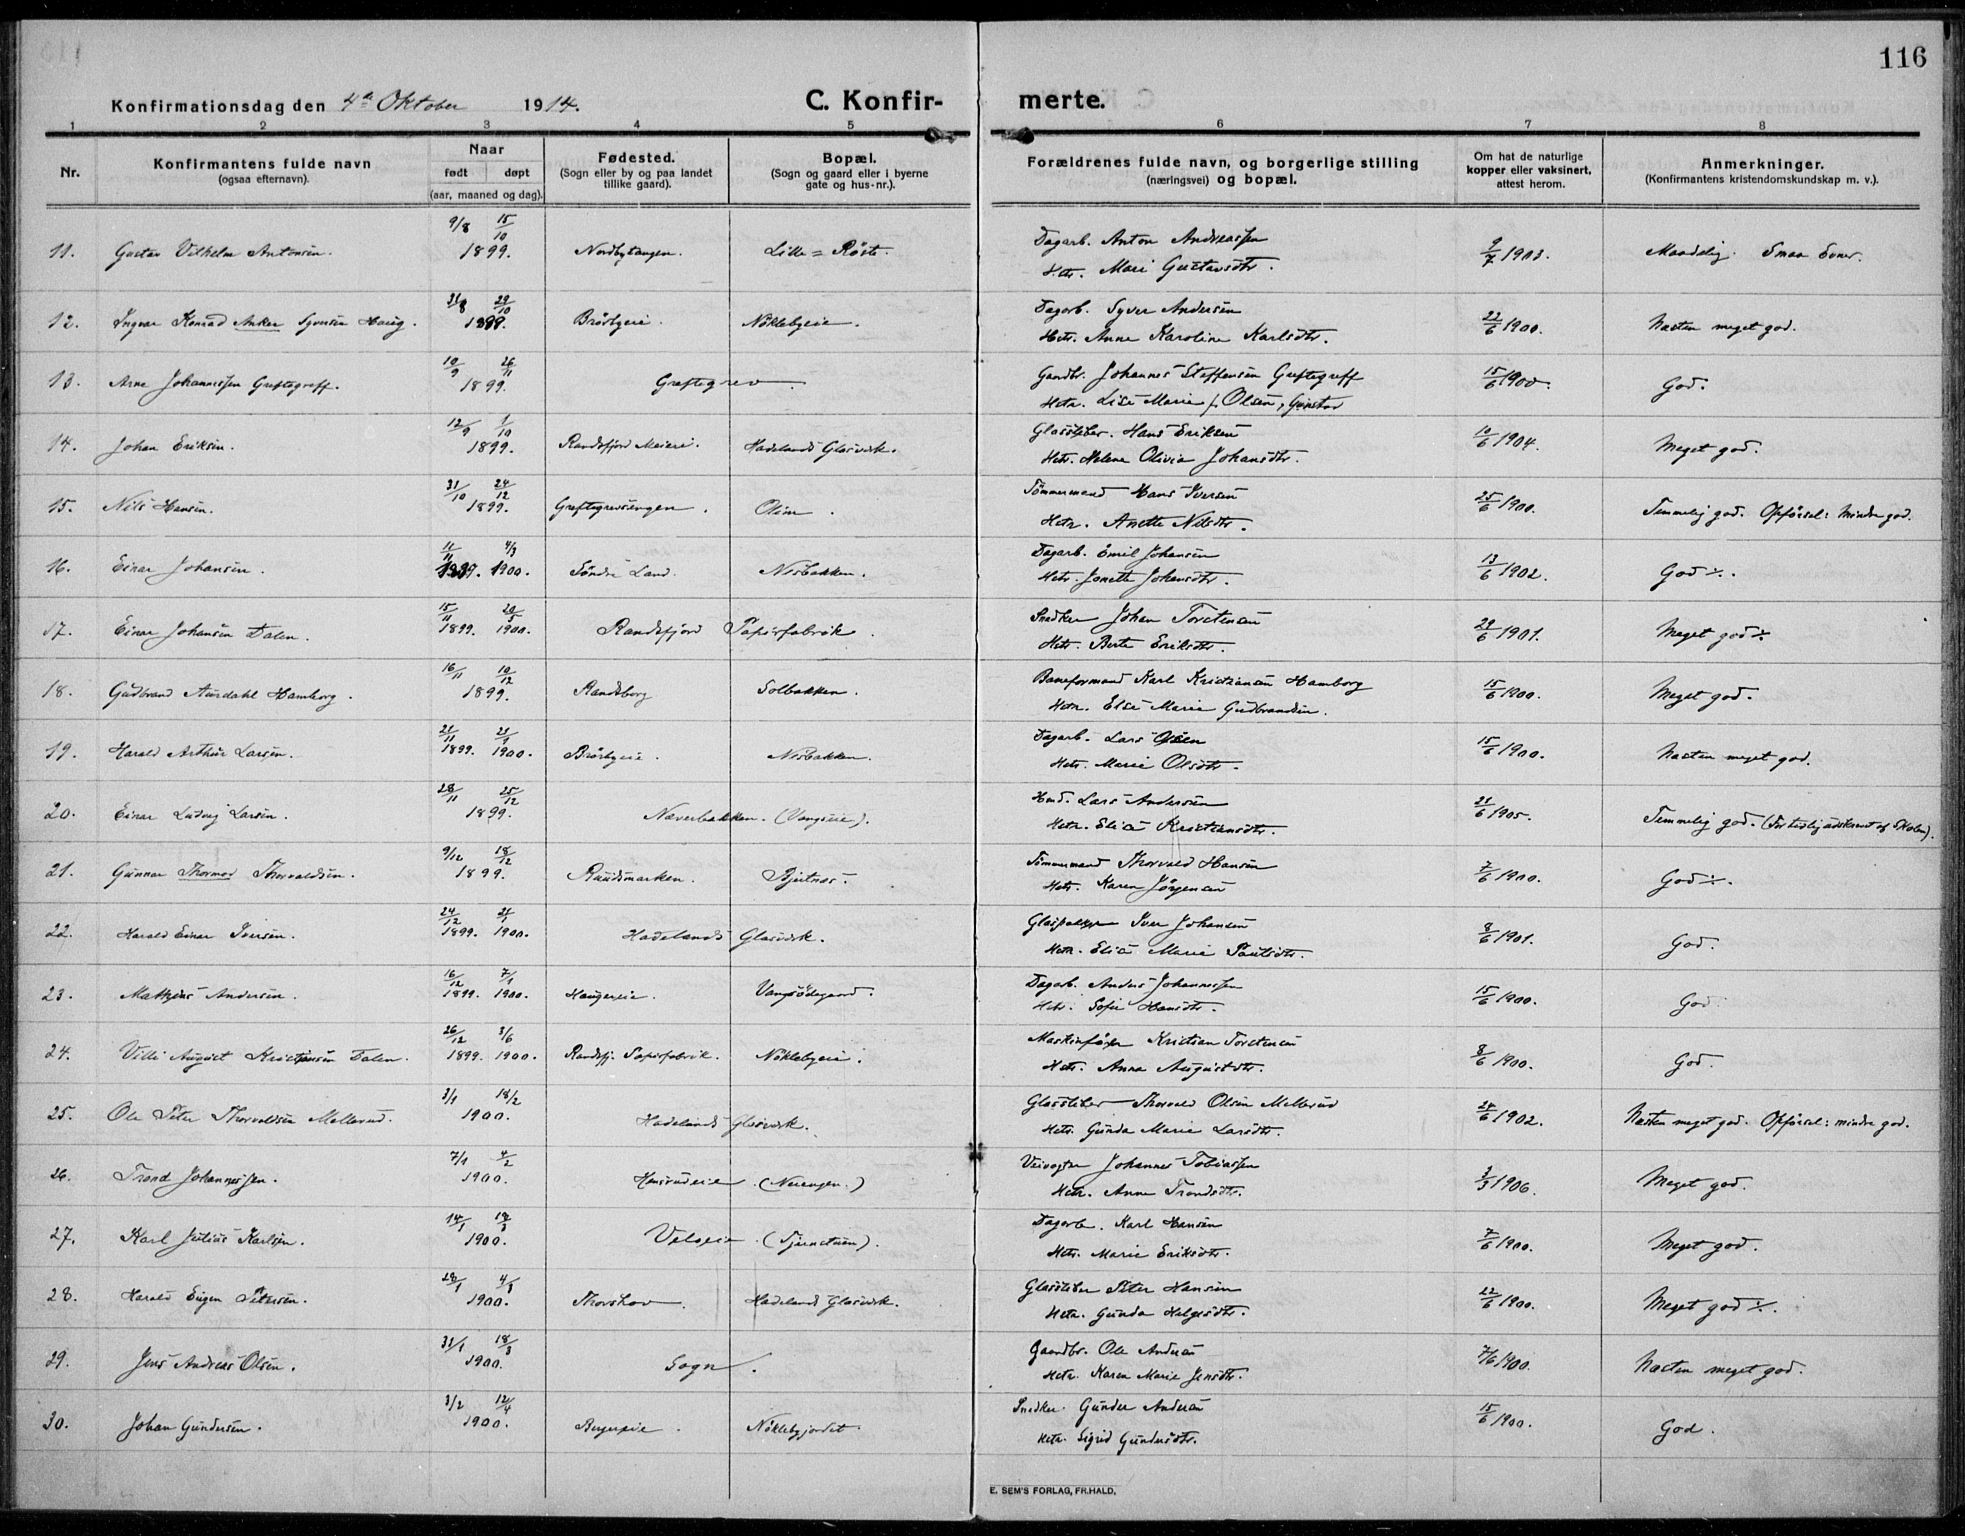 116
Konfirmationsdag den 4de Oktober 1914.
C. Konfirmerte.
1 2 3 4 5 6 7 8
Nr.
Konfirmantens fulde navn
(ogsaa efternavn).
Naar
født døpt
(aar, maaned og dag).
Fødested.
(Sogn eller by og paa landet
tillike gaard).
Bopæl.
(Sogn og gaard eller i byerne
gate og hus-nr.).
Forældrenes fulde navn, og borgerlige stilling
(næringsvei) og bopæl.
Om hat de naturlige
kopper eller vaksinert,
attest herom.
Anmerkninger.
(Konfirmantens kristendomskundskap m. v.).
11. Gustav Vilhelm Antonsen. 9/8 15/10 1899. Nordbytangen. Lille = Røste. Dagarb. Anton Andreassen 9/7 1903. Maadelig. Smaa Evner.
Htr. Mari Gustavsdtr.
12. Ingvar Konrad Anker Syversen Haug. 31/8 29/10 1899. Brørbyeie. Nøklebyeie. Dagarb. Syver Andersen 22/6 1900. Næsten meget god.
Hstr. Anne Karoline Karlsdtr.
13. Arne Johannessen Greftegreff. 10/9 26/11 1899. Greftegrev. Gaardbr. Johannes Steffensen Greftegreff 15/6 1900. God.
Hstr. Lise Marie f. Olsen, Grinstad
14. Johan Eriksen. 12/9 1/10 1899. Randsfjord Meieri. Hadelands Glasverk. Glassliber. Hans Eriksen 10/6 1904. Meget god.
Hstr. Helene Olivia Johansdtr.
15. Nils Hansen. 31/10 24/12 1899. Greftegrevsengen. Olim. Tømmermand Hans Iversen 25/6 1900. Temmelig god. Opførsel: Mindre god.
Hstr. Anette Nilsdtr.
16. Einar Johansen. 11/11 1899. 4/3 1900. Søndre Land. Nesbakken. Dagarb. Emil Johansen 13/6 1902. God ÷.
Hstr. Jonette Johansdtr.
17. Einar Johansen Dalen. 15/11 1899. 20/5 1900. Randsfjord Papirfabrik. Snedker Johan Torstensen 29/6 1901. Meget god ÷
Hstr. Berte Eriksdtr.
18. Gudbrand Aurdahl Hamborg. 16/11 10/12 1899. Randsborg Solbakken. Baneformand Karl Kristiansen Hamborg 15/6 1900. Meget god.
Hstr. Else Marie Gudbrandsen.
19. Harald Arthur Larsen. 21/11 1899. 21/1 1900. Brørbyeie. Nesbakken. Dagarb. Lars Olsen 15/6 1900. Næsten meget god.
Hstr. Marie Olsdtr.
20. Einar Ludvig Larsen. 28/11 25/12 1899. Næverbakken. (Vangseie). Hmd. Lars Andersen 21/6 1905. Temmelig god. (For tidlig utskrevet af Skolen).
Hstr. Elise Kristiansdtr.
21. Gunnar Thormod Thorvaldsen. 9/12 18/12 1899. Ruudsmarken. Bjertnæs. Tømmermand Thorvald Hansen 7/6 1900. God ÷.
Hstr. Karen Jørgensen
22. Harald Einar Iversen. 24/12 1899. 21/1 1900. Hadelands Glasverk. Glaspakker Iver Johansen 8/6 1901. God.
Hstr. Elise Marie Paulsdtr.
23. Mathius Andersen. 16/12 1899. 7/1 1900. Haugereie. Vangsødegaard. Dagarb. Anders Johannessen 15/6 1900. God.
Hstr. Sofie Hansdtr.
24. Villi August Kristiansen Dalen. 26/12 1899. 3/6 1900. Randsfj. Papirfabrik. Nøklebyeie. Maskinfører Kristian Torstensen 8/6 1900. God.
Hstr. Anna Augustdtr.
25. Ole Peter Thorvaldsen Mellerud. 3/1 18/2 1900. Hadelands Glasverk. Glassliber Thorvald Olsen Mellerud 24/6 1902. Næsten meget god. Opførsel: mindre god.
Hstr. Gunda Marie Larsdtr.
26. Trond Johannessen. 7/1 4/2 1900. Hensrudeie (Nerengen.) Veivogter Johannes Tobiassen 3/3 1906. Meget god.
Hstr. Anne Trondsdtr.
27. Karl Julius Karlsen. 14/1 18/3 1900. Velseie. (Tjernstuen). Dagarb. Karl Hansen 7/6 1900. Meget god.
Hstr. Marie Eriksdtr.
28. Harald Eugen Petersen. 28/1 4/3 1900. Thorshov Hadelands Glasverk. Glassliber Peter Hansen 22/6 1900. Meget god ÷.
Hstr. Gunda Helgesdtr.
29. Jens Andreas Olsen. 31/1 18/3 1900. Sogn. Gaardbr. Ole Andersen 7/6 1900. Næsten meget god.
Hstr. Karen Marie Jensdtr.
30. Johan Gundersen. 3/2 12/4 1900. Bergereie. Nøklebyjordet. Snedker Gunder Andersen 15/6 1900. God.
Hstr. Sigrid Gundersdtr.
E. SEM'S FORLAG, FR.HALD.